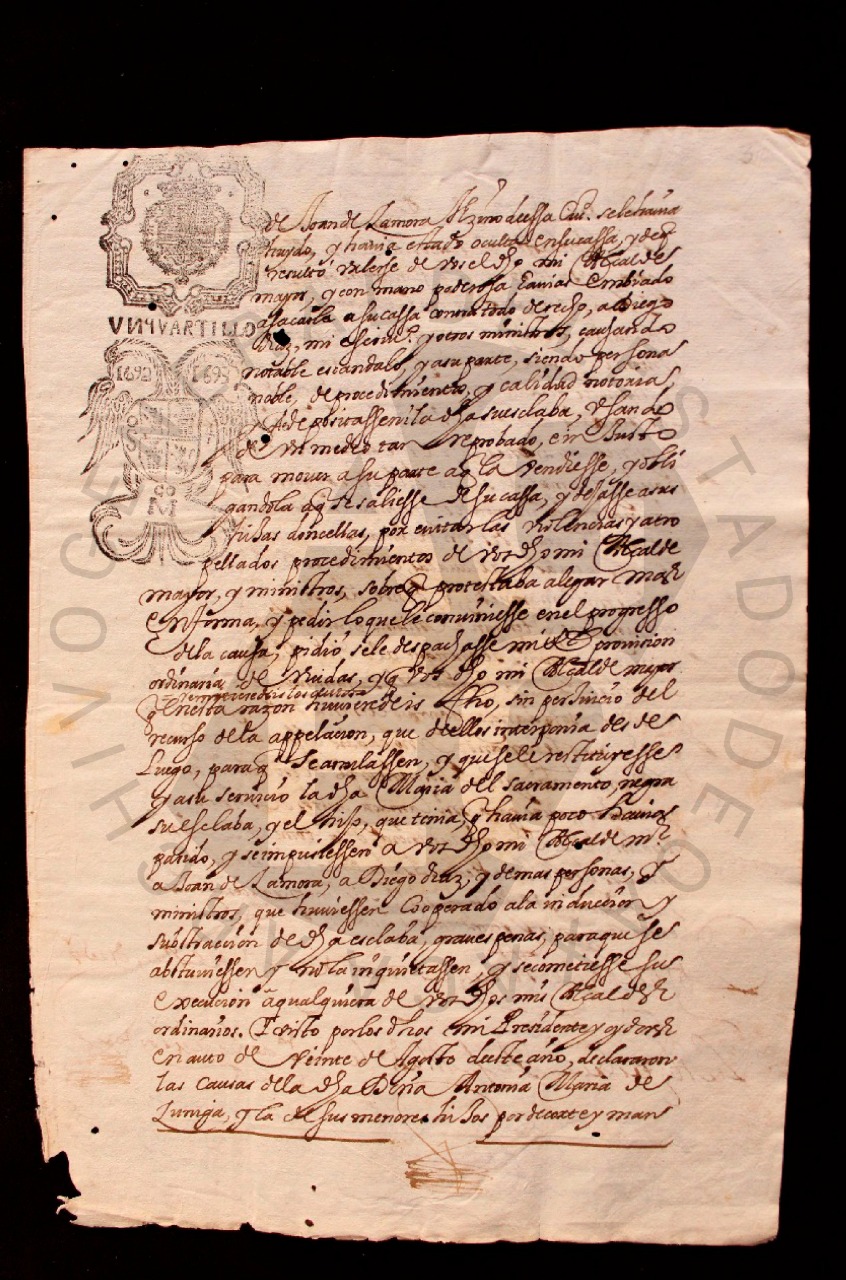 de Joan de Zamora Vzino de essa Ciud. se le havia
huydo, y havia estado oculta en su cassa, y de q
resultó valerse de vos el dho mi Alcalde
mayor, y con mano poderosa haviais embiado
a sacarla a su cassa contra todo derecho, a Diego
Diaz, mi escriuo. y otros ministros, causando
VN QVARTILLO
notable escandalo, y a su parte, siendo persona
1692 1693
noble, de procedimiento, y calidad notoria,
depositassen la dha su esclaba, vsando
de vn medio tan reprobado, e in Justo
para mouer a su parte a q la vendiesse, y obli
gandola a q se saliesse de su cassa, y dejasse a sus
hijas doncellas, por evitar las violencias y atro
pellados procedimientos de vos dho mi Alcalde
mayor, y ministros, sobre q protestaba alegar mas
en forma, y pedir lo que le conviniesse en el progresso
de la causa; pidió se le despachasse mi Rl provision
ordinaria de Viudas, y q vos dho mi Alcalde mayor
remitieredeis los autos
q en esta razon huvieredeis fho, sin perjuicio del
recurso de la appelacion, que de ellos interponia desde
Luego, para q se anulassen, y que se le restituyesse
y a su servicio la dha Maria del sacramento, negra
su esclaba, y el hijo, que tenia, q havia poco haviaa
parido, y se impusiessen a vos dho mi Alcalde mr.
a Joan de Zamora, a Diego diaz, y demas personas, y
ministros, que huviessen cooperado a la induccion y
substraccion de dha esclaba, graves penas, para que se
abstuviessen y no la inquietassen, y se cometiesse su
execucion a qualquiera de vos dhos mis Alcaldes
ordinarios. Y visto por los dhos mi Presidente y oydores
en auto de veinte de Agosto deste año, declararon
las causas de la dha Doña Antonia Maria de
Zuniga, y la de sus menores hijos por de corte y man